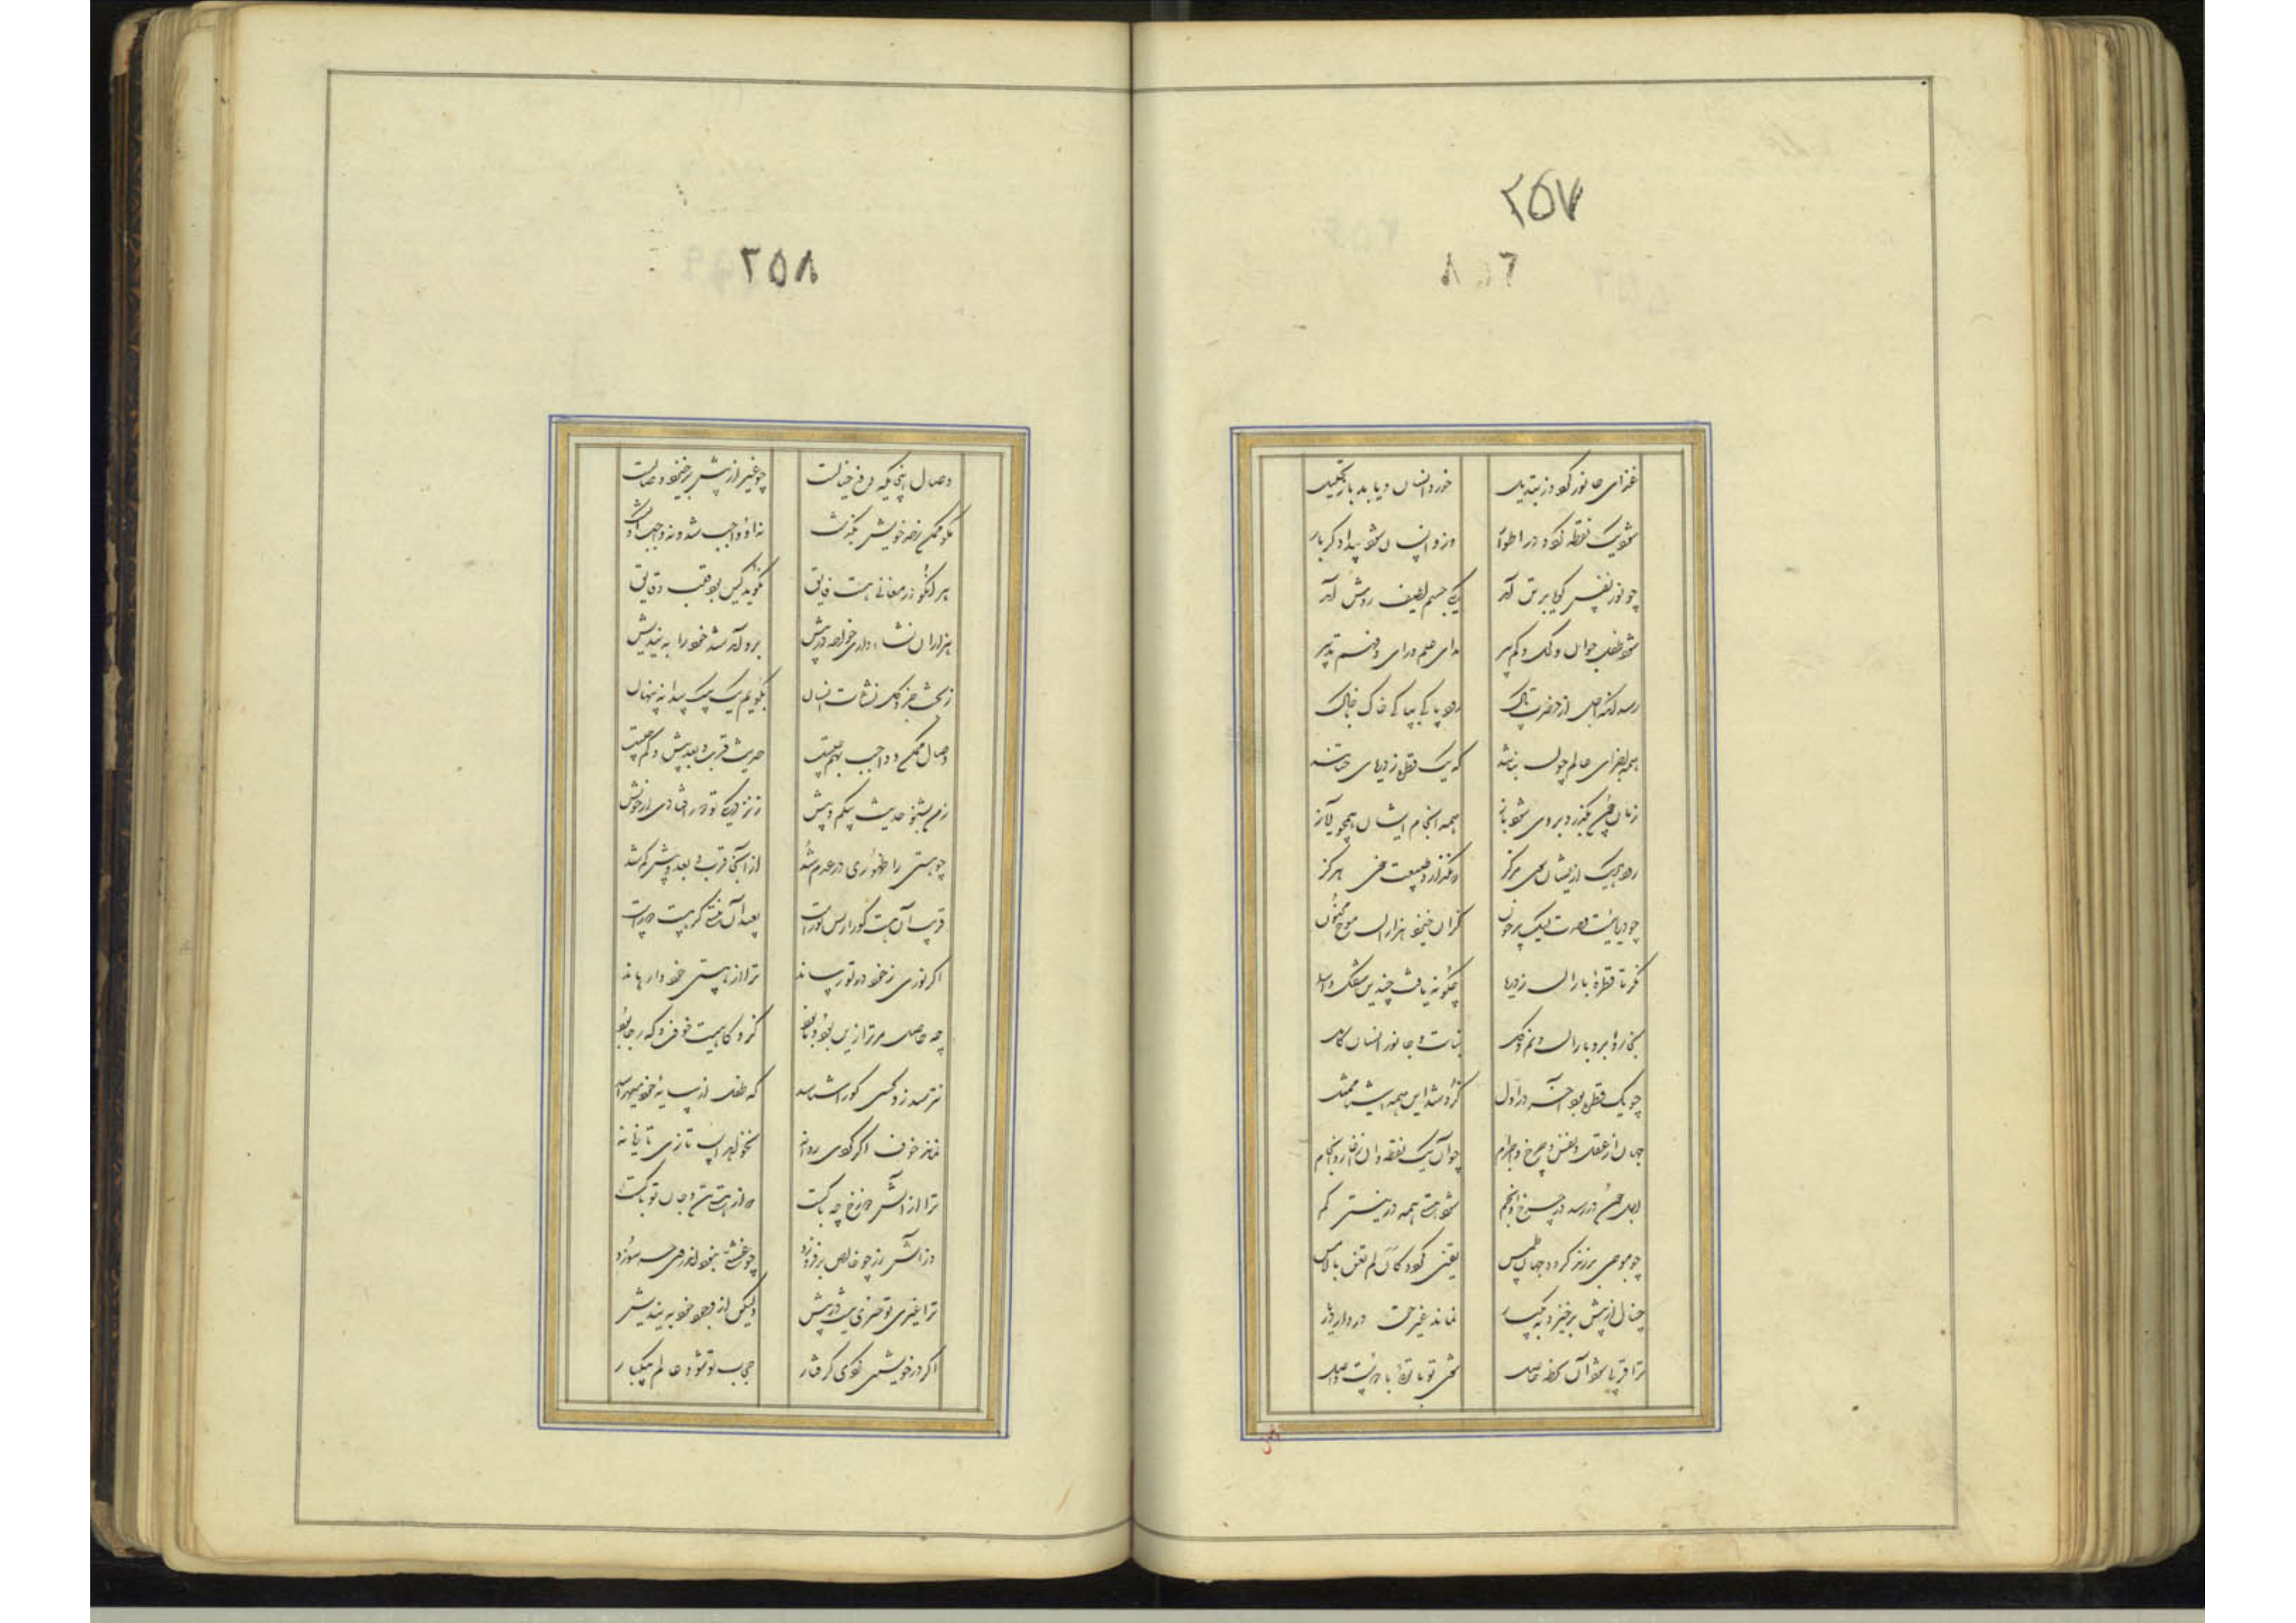 ۲۵۷
غذای جانور گردد ز تبدیل خورد انسان و یابد باز تحلیل
شود یک نقطه گردد در اطوار وزو انسان شود پیدا دگر بار
چو نور نفس گویا بر تن آید یکی جسم لطیف روشن آید
شود طفل جوان و کهل و کم پیر علم و رای و فهم تدبیر
رسد آنگه اجل از حضرت پاک رود پاکی بپاکی خاک خاک
همه اجزای عالم چون نباتند که یک قطره ز دریای حیاتند
زمان چون بگذرد بر وی شود باز همه انجام ایشان همچو آغاز
رود هر یک از یشان سوی مرکز که نگذارد طبیعت خوی مرکز
چو دریائیست وحدت لیک پر خون کزان خیزد هزاران موج مجنون
نگر تا قطرۀ باران ز دریا چگونه یافت چندین شکل و اسما
بخار و ابر و باران و نم و گل نبات و جانور انسان کامل
چو یک قطره بود آخر در اول کزو شد این همه اشیا ممثل
جهان از عقل و نفس و چرخ و اجرام چو آن یک نقطه دان ز آغاز و انجام
اجل چون در رسد در چرخ و انجم شود هستی همه در نیستی گم
چو موجی بر زند گردد جهان طمس یقین گردد کان لم تغن بالامس
خیال از پیش برخیزد بیکبار نماند غیر حق در دار دیار
ترا قربی شود آن لحظه حاصل شوی تو بی توئی با دوست واصل
۲۵۸
وصال اینجایگه رفع خیالست چو غیر از پیش برخیزد وصالست
مگو ممکن ز حد خویش بگذشت نه او واجب شد و نه واجب او گشت
هر آنکو در معانی هست فایق نگوید کین بود قلب حقایق
هزاران نشاه داری خواجه در پیش برو آمد شد خود را بیندیش
ز بحث جزو و کل نشات انسان بگویم یک بیک پیدا و پنهان
وصال ممکن و واجب بهم چیست حدیث قرب و بعد و بیش و کم چیست
ز من بشنو حدیث بی کم و بیش ز نزدیکی تو دور افتادی از خویش
چو هستی را ظهوری در عدم شد از آنجا قرب و بعد و بیش و کم شد
قریب آن هست کو را رش نورست بعید آن نیستی کز هست دورست
اگر نوری ز خود در تو رساند ترا از هستی خود وارهاند
چه حاصل مر ترا زین بود و نابود کزو گاهیت خوف و گه رجا بود
نترسد زو کسی کو را شناسد که طفل از سایۀ خود میهراسد
نماند خوف اگر گردی روانه نخواهد اسب تازی تازیانه
ترا از آتش دوزخ چه باکست که از هستی تن و جان تو پاکست
از آتش زر خالص برفروزد چو غشی نبود اندر وی چه سوزد
ترا غیر تو چیزی نیست در پیش ولیکن از وجود خود بیندیش
اگر در خویشتن گردی گرفتار حجاب تو شود عالم بیکبار